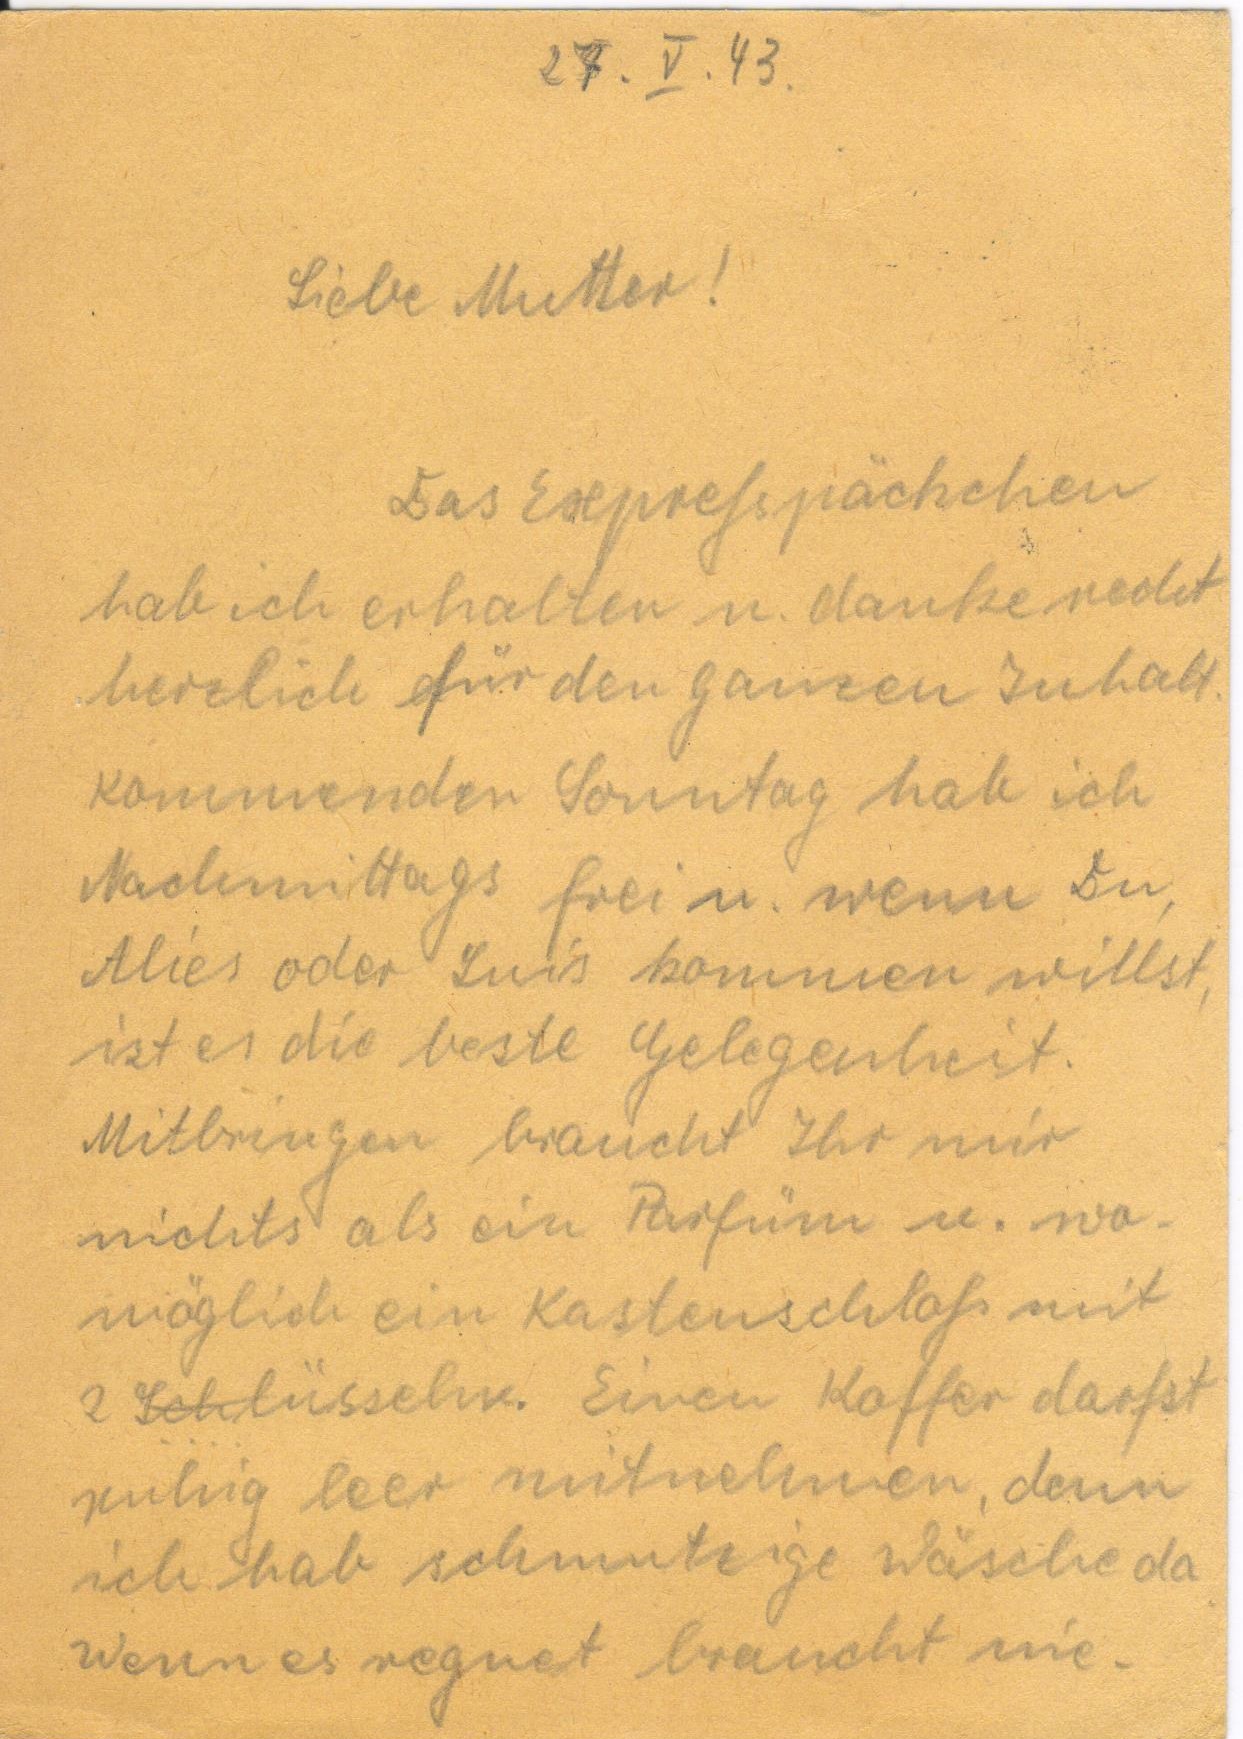 27. V. 43.
Liebe Mutter!
Das Expresspäckchen
hab ich erhalten u. danke recht
herzlich für den ganzen Inhalt.
Kommenden Sonntag hab ich
Nachmittags frei u. wenn Du,
Alies oder Luis kommen willst,
ist es die beste Gelegenheit.
Mitbringen braucht Ihr mir
nichts als ein Parfüm u. wo-
möglich ein Kastenschloß mit
2 Schlüsseln. Einen Koffer darfst
ruhig leer mitnehmen, denn
ich hab schmutzige Wäsche da
Wenn es regnet braucht nie-